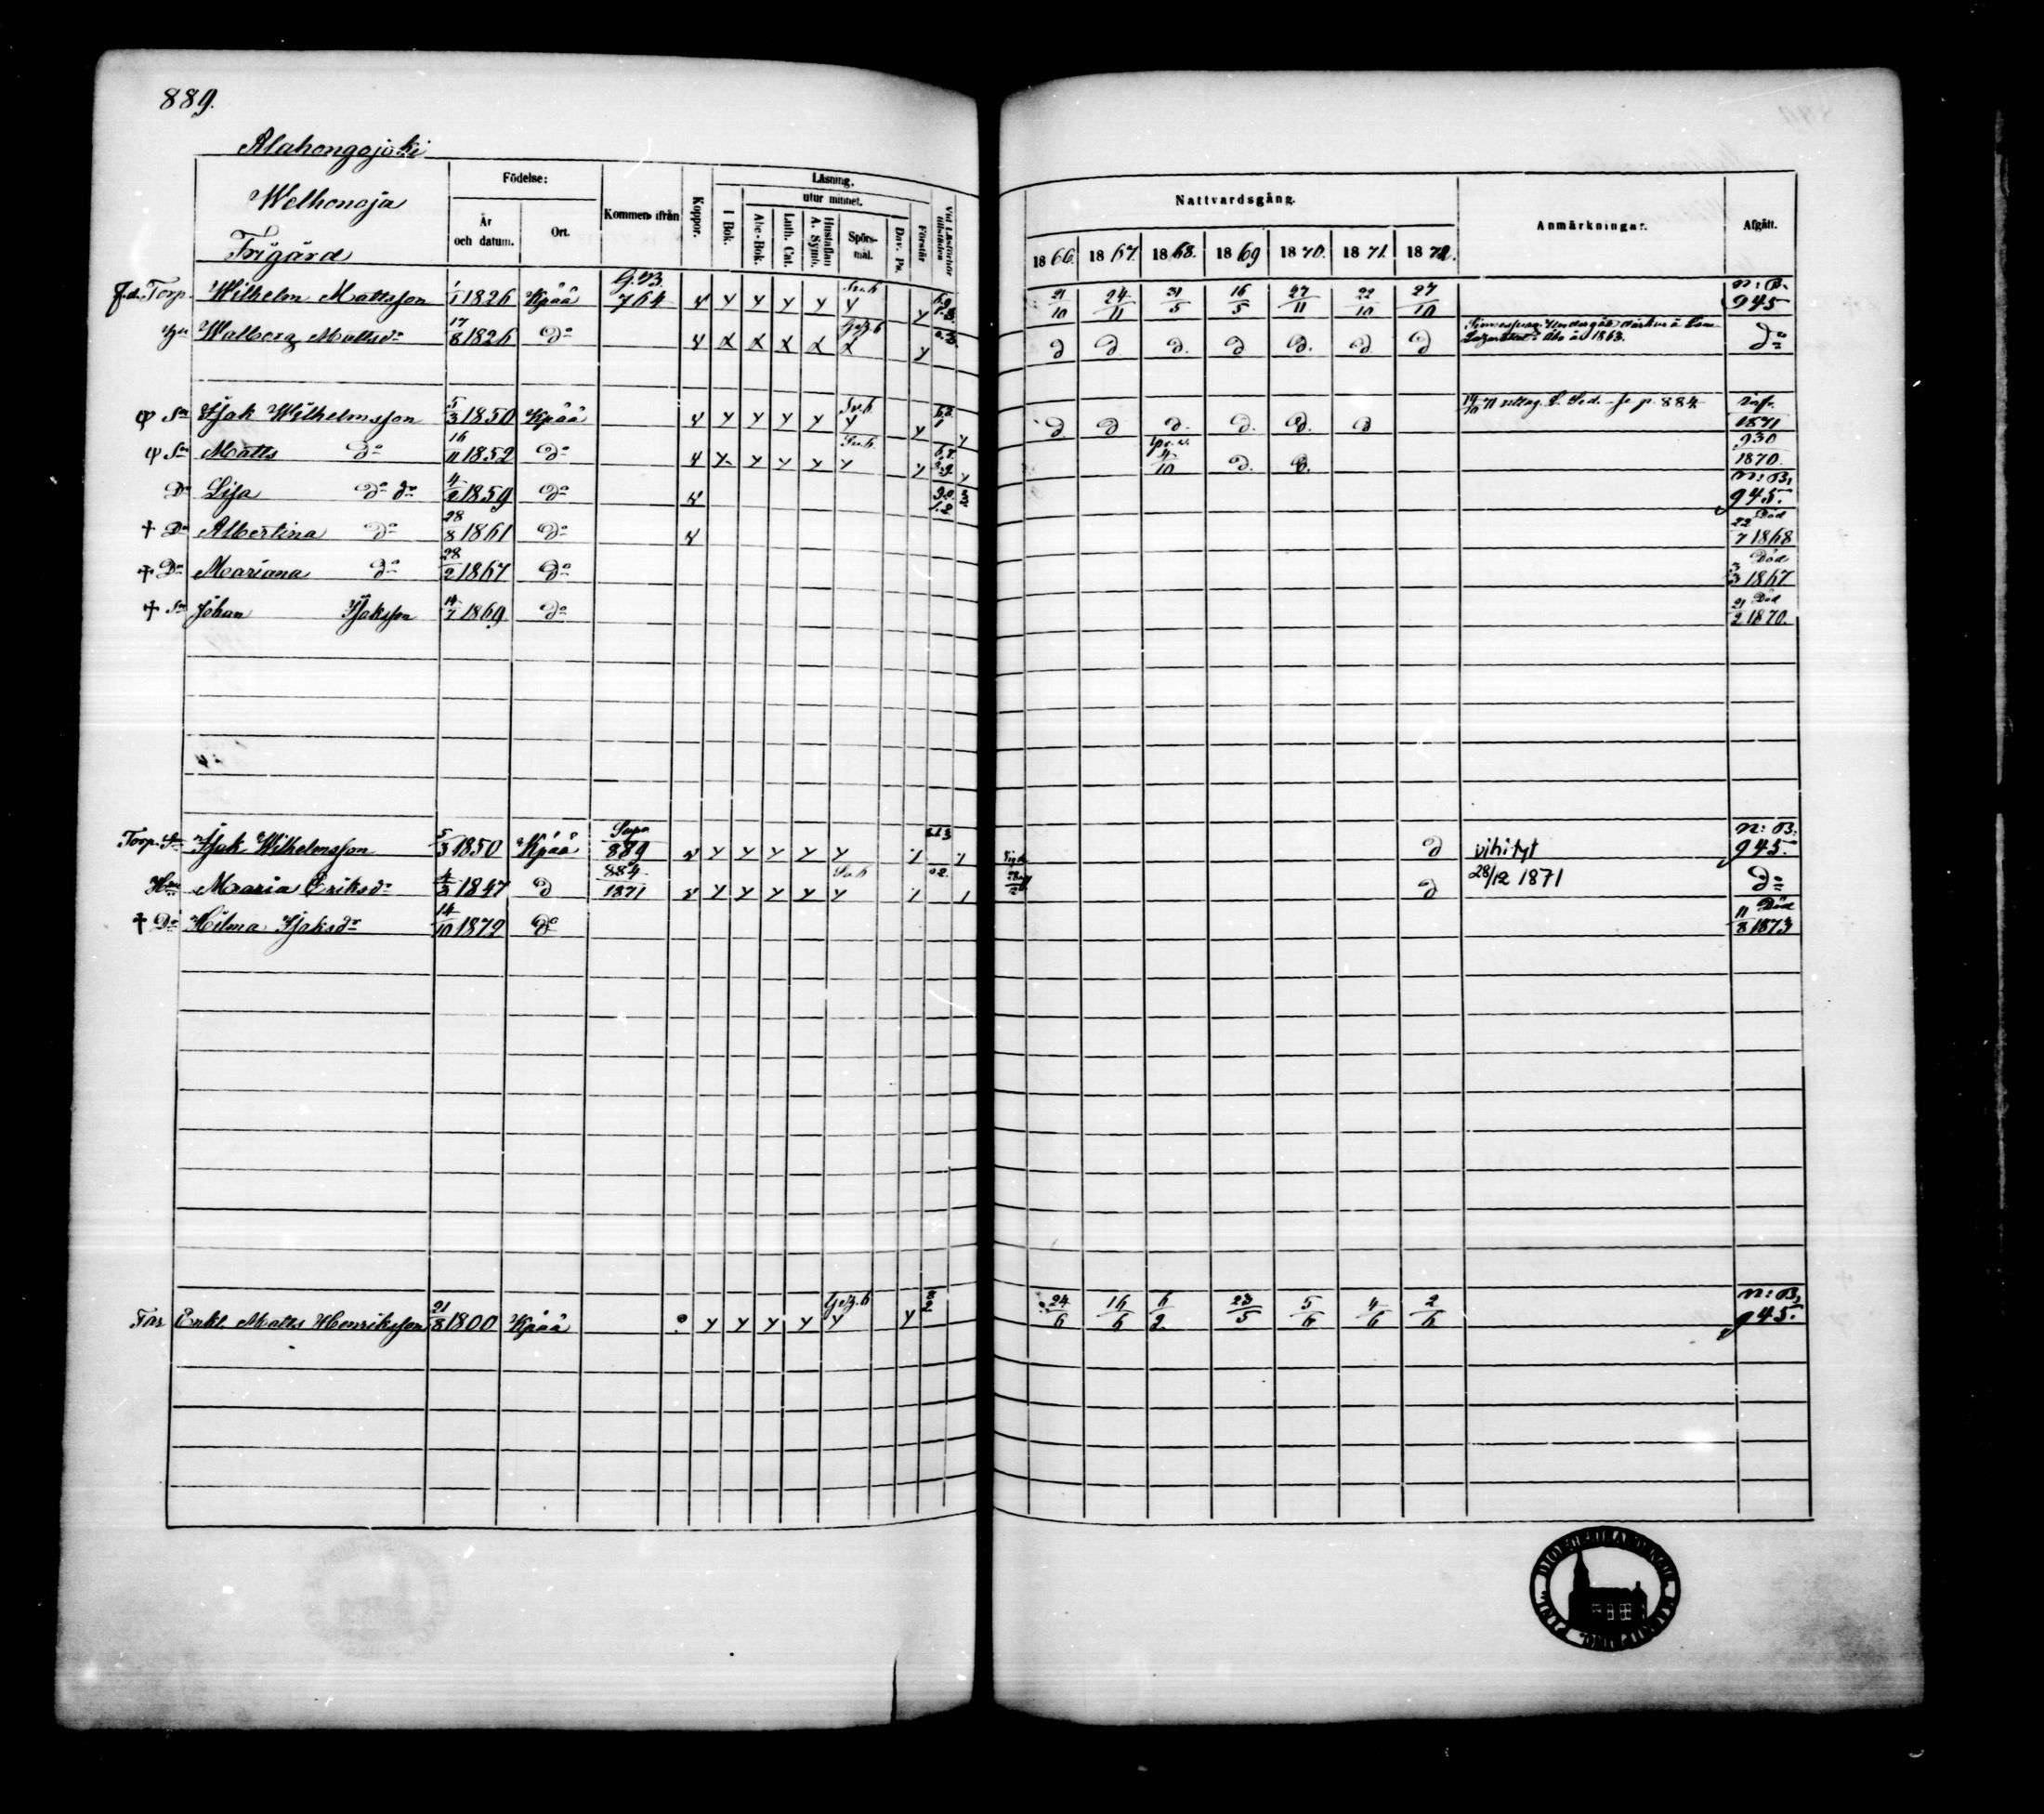 889.
Alahongojoki
Welhonoja
Frigård
Födelse:
År och datum.
Ort.
Kommen ifrån
Koppor.
Läsning.
utur minnet.
I Bok.
Abc-Bok.
Luth. Cat.
Hustaflan A. Symb.
Spörs-mål.
Dav. Ps.
Förstår
Vid Läsförhör tillstädes
Nattvardsgång.
1866. 1867. 1868. 1869 1870. 1871. 1872.
Anmärkningar.
Afgått.
F.d. Torp. Wilhelm Mattsson 1/1 1826 Kpää G.B. 764 Y Y Y Y Y 21/10 24/11 31/5 16/5 27/11 22/10 27/10 N:B. 945
Hu Walborg Mattsdr 17/8 1826 do d d d. d d. d d år 1863. do
Sn Isak Wilhelmsson 5/3 1850 Kpää Y Y Y Y Y d d d. d. d. d p. 884 1871
Sn Matts do 16/11 1852 do Y Y Y Y Y 4/10 d. d. 930 1870.
Dr Lisa do dr 4/2 1859 do N:B. 945.
† Dr Albertina do 28/8 1861 do Död 22/7 1868
† Dr Mariana do 28/2 1867 do Död 3/3 1867
† Sn Johan Isaksson 14/7 1869 do Död 21/2 1870.
Torp. Sn Isak Wilhelmsson 5/3 1850 Kpää 889 Y Y Y Y Y d vihityt N:B. 945.
Hu Maria Eriksdr 4/3 1847 d 884 1871 Y Y Y Y Y d 28/12 1871 do
† Dr Hilma Isaksdr 14/10 1872 do Död 11/8 1873
Far Enkl. Matts Henriksson 21/8 1800 Kpää Y Y Y Y Y Y 24/6 16/6 6/2. 23/5 5/6 4/6 2/6 N:B. 945.